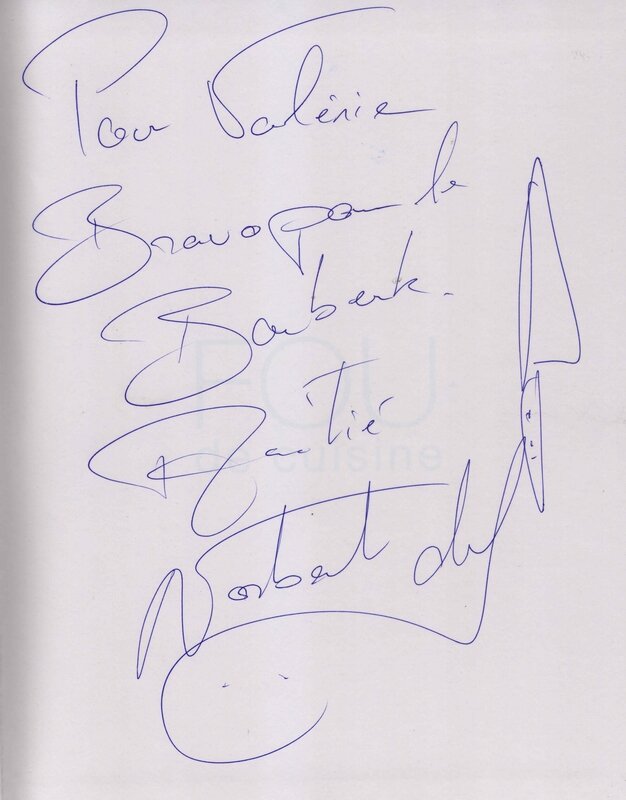 Pour Valérie
Bravo pour le
Barberk.
Amitié
Norbert
FOU
de cuisine